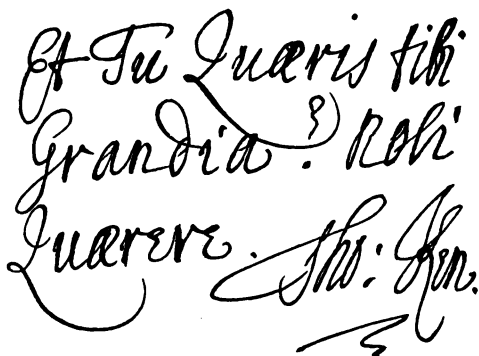 Et Tu Quæris tibi
Grandia? Noli
Quærere. Tho: Ken.